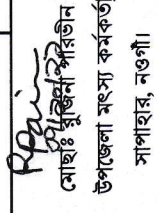 মোছাঃ রুজিনা পারভীন
উপজেলা মৎস্য কর্মকর্তা
সাপাহার, নওগাঁ।